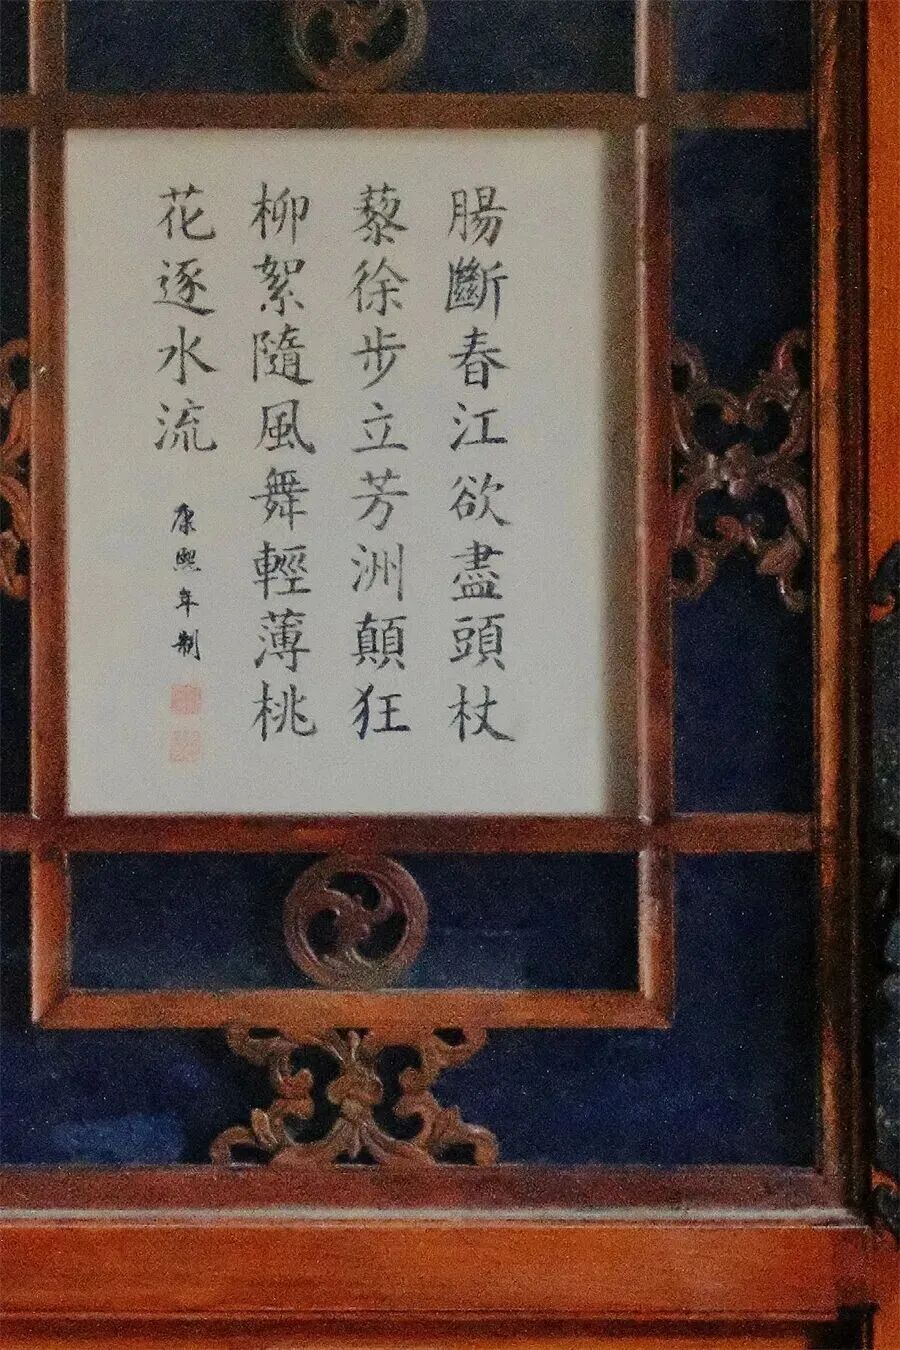 腸斷春江欲盡頭杖
藜徐步立芳洲顛狂
柳絮隨風舞輕薄桃
花逐水流
康熙年制